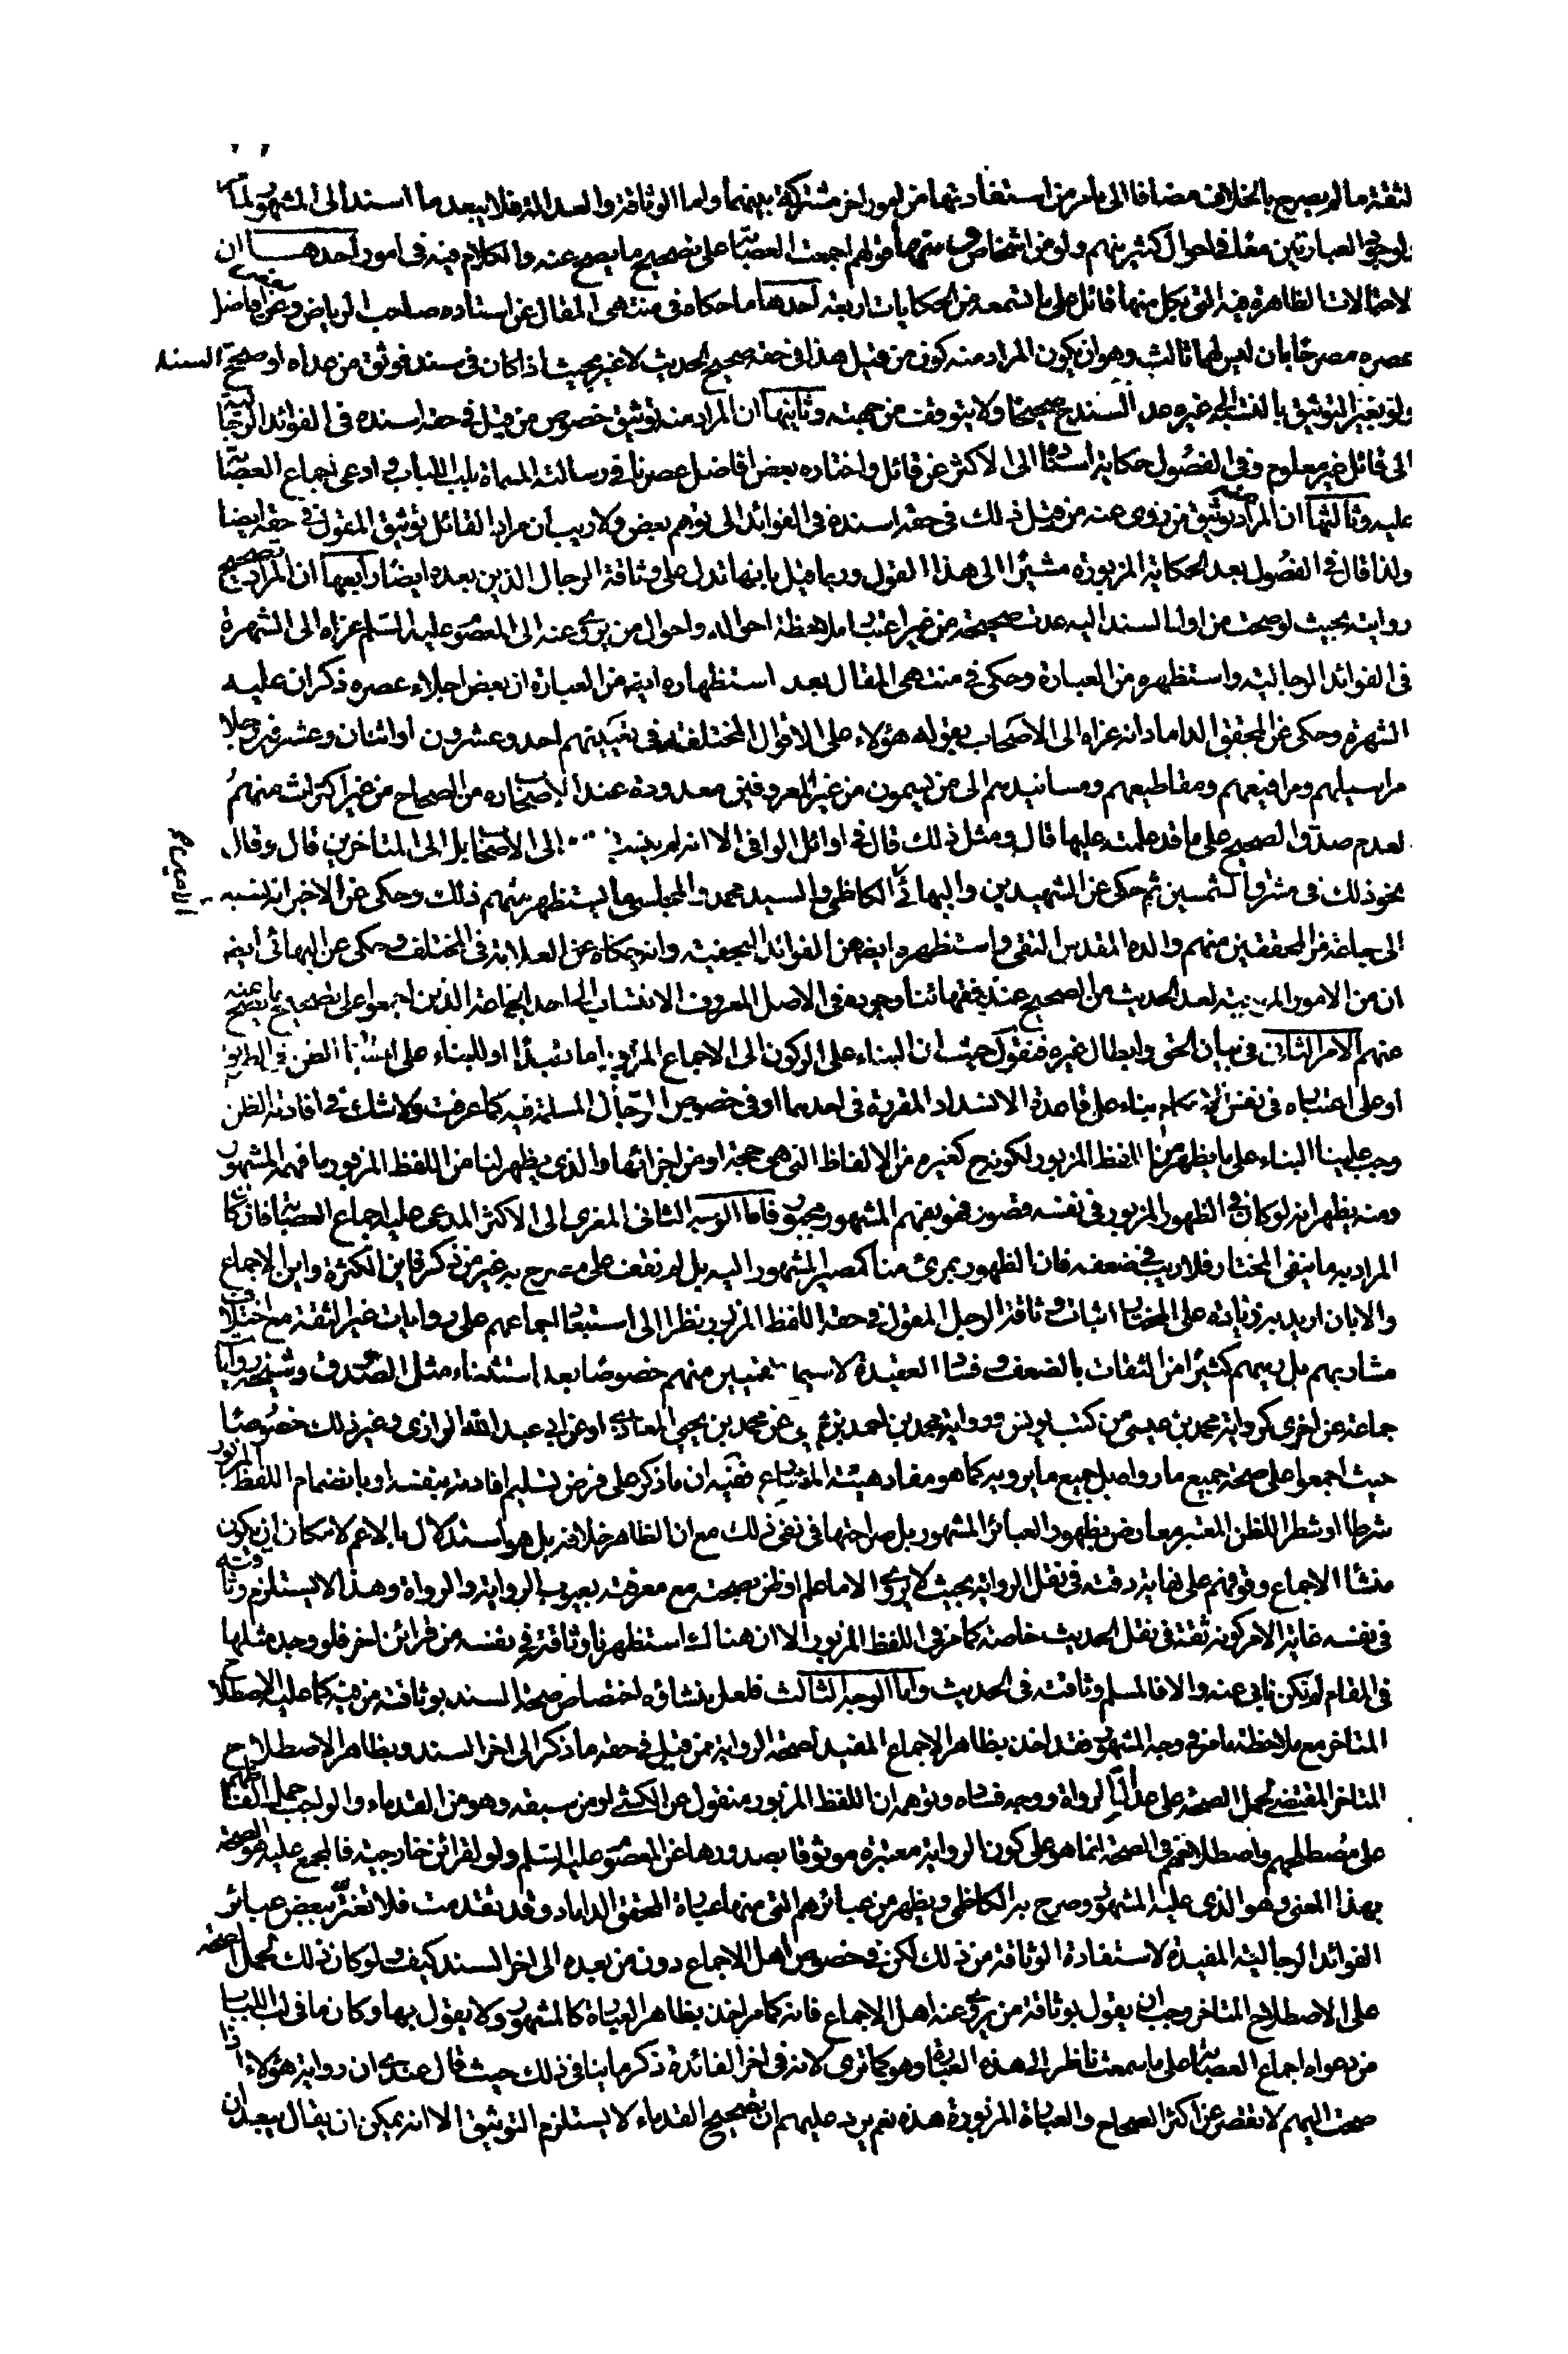 لثقة ما لم يصرح بالخلاف مضافا الى ما مر من استفادتها من امور اخر مشتركة بينهما واما الوثاقة والعدالة فلا يبعد ما اسند الى المشهور لما
العبارتين معا في احوال كثير منهم ولو من اشخاص ومنها قولهم اجمعت العصابة على تصحيح ما يصح عنه والكلام فيه في امور احدها ان
الاحتمالات الظاهرة فيه التي بكل منها قائل على ما تسمعه من الحكايات اربعة احدها ما حكاه في منتهى المقال عن استاده صاحب الرياض وبعض افاضل
عصره مصرحا بان ليس لهما ثالث وهو ان يكون المراد منه كون من قيل هذا في حقه صحيح الحديث لا غير بحيث اذا كان في سند فوثق من عداه او صحح السند
ولو بغير التوثيق بالنسبة الى غيره عد السند ح صحيحا ولا يتوقف من جهته وثانيها ان المراد منه توثيق خصوص من قيل في حقه اسنده في الفوائد الرجالية
الى قائل غير معلوم وفي الفصول حكاية اسناده الى الاكثر عن قائل واختاره بعض افاضل عصرنا في رسالته المسماة بلب اللباب وادعى اجماع العصابة
عليه وثالثها ان المراد توثيق من روى عنه من قيل ذلك في حقه اسنده في الفوائد الى توهم بعض ولا ريب ان مراد القائل توثيق المقول في حقه ايضا
ولذا قال في الفصول بعد الحكاية المزبورة مشيرا الى هذا القول وربما قيل بانها تدل على وثاقة الرجال الذين بعده ايضا رابعها ان المراد تصحيح
روايته بحيث لو صحت من اول السند اليه عدت صحيحة من غير اعتبار ملاحظة احواله واحوال من يروى عنه الى المعصوم عليه السلم عزاه الى الشهرة
في الفوائد الرجالية واستظهره من العبارة وحكى في منتهى المقال بعد استظهاره ايضا من العبارة ان بعض اجلاء عصره ذكر ان عليه
الشهرة وحكى عن المحقق الداماد انه عزاه الى الاصحاب بقوله هؤلاء على الاقوال المختلفة في تعيينهم احد وعشرون او اثنان وعشرون رجلا
مراسيلهم ومرافيعهم ومقاطيعهم ومسانيدهم الى من يسمون من غير المعروفين معدودة عند الاصحاب من الصحاح من غير اكتراث منهم
لعدم صدق الصحيح على ما قد علمت عليها قال ومثل ذلك قال في اوائل الوافي الا انه لم ينسبه الى الاصحاب بل الى المتاخرين قال وقال
نحو ذلك في مشرق الشمسين ثم حكى عن الشهيدين والبهائي والكاظمي والسيد محمد والمجلسي ما يستظهر منهم ذلك وحكى عن الاخير انه نسبه
الى جماعة من المحققين منهم والده المقدس التقي واستظهره ايضا من الفوائد النجفية وانه حكاه عن العلامة في المختلف وحكى عن البهائي ايضا
ان من الامور لعد الحديث من الصحيح عند قدمائنا وجوده في الاصل المعروف الانتساب الى احد الجماعة الذين اجمعوا على تصحيح ما يصح عنه
منهم الامر الثاني في بيان الحق وابطال غيره فنقول حيث ان البناء على الركون الى الاجماع المزبور اما تعبدا او للبناء على اعتبار الظن في الطريق
او على اعتباره في نفس الاحكام بناء على قاعدة الانسداد المقررة في احدهما او في خصوص الرجال المسلمة فيه كما عرفت ولا شك في افادته الظن
وجب علينا البناء على ما يظهر من اللفظ المزبور لكونه ح كغيره من الالفاظ التي هي حجة او من اجزائها والذي يظهر لنا من اللفظ المزبور ما فهمه المشهور
ومنه يظهر انه لو كان في الظهور المزبور في نفسه قصور فهو بفهم المشهور مجبور فاما الوجه الثاني المعزى الى الاكثر المدعى عليه اجماع العصابة فان كان
المراد به ما ينفى المختار فلا ريب في ضعفه فان الظهور بمرئ منا كمصير المشهور اليه بل لم نقف على مصرح به غير من ذكر فاين الكثرة واين الاجماع
والا بان اريد به زيادة على المختار اثبات وثاقة الرجل المقول في حقه اللفظ المزبور نظرا الى استبعاد اجماعهم على روايات غير الثقة مع اختلاف
مشاربهم بل رميهم كثيرا من الثقات بالضعف وفساد العقيدة لا سيما القميين منهم خصوصا بعد استثناء مثل الصدوق وشيخه روايات
جماعة عن اخرى كرواية محمد بن عيسى من كتب يونس ورواية محمد بن احمد بن يحيى عن محمد بن يحيى المعاذي او عن ابي عبد الله الرازي وغير ذلك خصوصا
حيث اجمعوا على صحة جميع ما رواه بل جميع ما يرويه كما هو مفاد هيئة المضارع ففيه ان ما ذكر على فرض تسليم افادته بنفسه او بانضمام اللفظ المزبور
شرطا او شطرا للظن المعتبر معارض بظهور العبائر المشهور بل صراحتها في نفي ذلك مع ان الظاهر خلافه بل هو استدلال بالاعم لامكان ان يكون
منشأ الاجماع وقوفهم على نهاية دقته في نقل الرواية بحيث لا يروى الا ما علم او ظن بصحته مع معرفته بعيوب الرواية والرواة وهذا لا يستلزم وثاقته
في نفسه غاية الامر كونه ثقة في نقل الحديث خاصة كما مر في اللفظ المزبور الا ان هناك استظهرنا وثاقته في نفسه من قرائن اخر فلو وجد مثلها
في المقام لم نكن نابى عنه والا فالمسلم وثاقته في الحديث واما الوجه الثالث فلعل منشاؤه اختصاص صحة السند بوثاقة من فيه كما عليه الاصطلاح
المتاخر مع ملاحظة ما مر في وجه المشهور فقد اخذ بظاهر الاجماع المفيد لصحة الرواية ممن قيل في حقه ما ذكر الى اخر السند وبظاهر الاصطلاح
المتاخر المقتضى لحمل الصحة على عدالة الرواة ووجه فساده وتوهمه ان اللفظ المزبور منقول عن الكشي او من سبقه وهو من القدماء والواجب حمل الفاظهم
على مصطلحهم واصطلاحهم في الصحة انما هو على كون الرواية معتبرة موثوقا بصدورها عن المعصوم عليه السلم ولو لقرائن خارجية فالمجمع عليه هو الصحة
بهذا المعنى وهو الذي عليه المشهور وصرح به الكاظمي ويظهر من عبائرهم التي منها عبارة المحقق الداماد وقد تقدمت فلا تغتر ببعض عبائر
الفوائد الرجالية المفيدة لاستفادة الوثاقة من ذلك لكن في خصوص اهل الاجماع دون من بعده الى اخر السند كيف ولو كان ذلك لحمل الصحة
على الاصطلاح المتاخر وجب ان يقول بوثاقة من يروى عنه اهل الاجماع فانه كما مر اخذ بظاهر العبارة كالمشهور ولا يقول بها وكان ما في لب اللباب
من دعواه اجماع العصابة على ما سمعت ناظر الى هذه العبارة وهو كما ترى لانه في اخر الفائدة ذكر ما ينافي ذلك حيث قال عندي ان رواية هؤلاء اذا
صحت اليهم لا تقصر عن اكثر الصحاح والعبارة المزبورة هذه نعم يرد عليهم ان تصحيح القدماء لا يستلزم التوثيق الا انه يمكن ان يقال يبعد ان